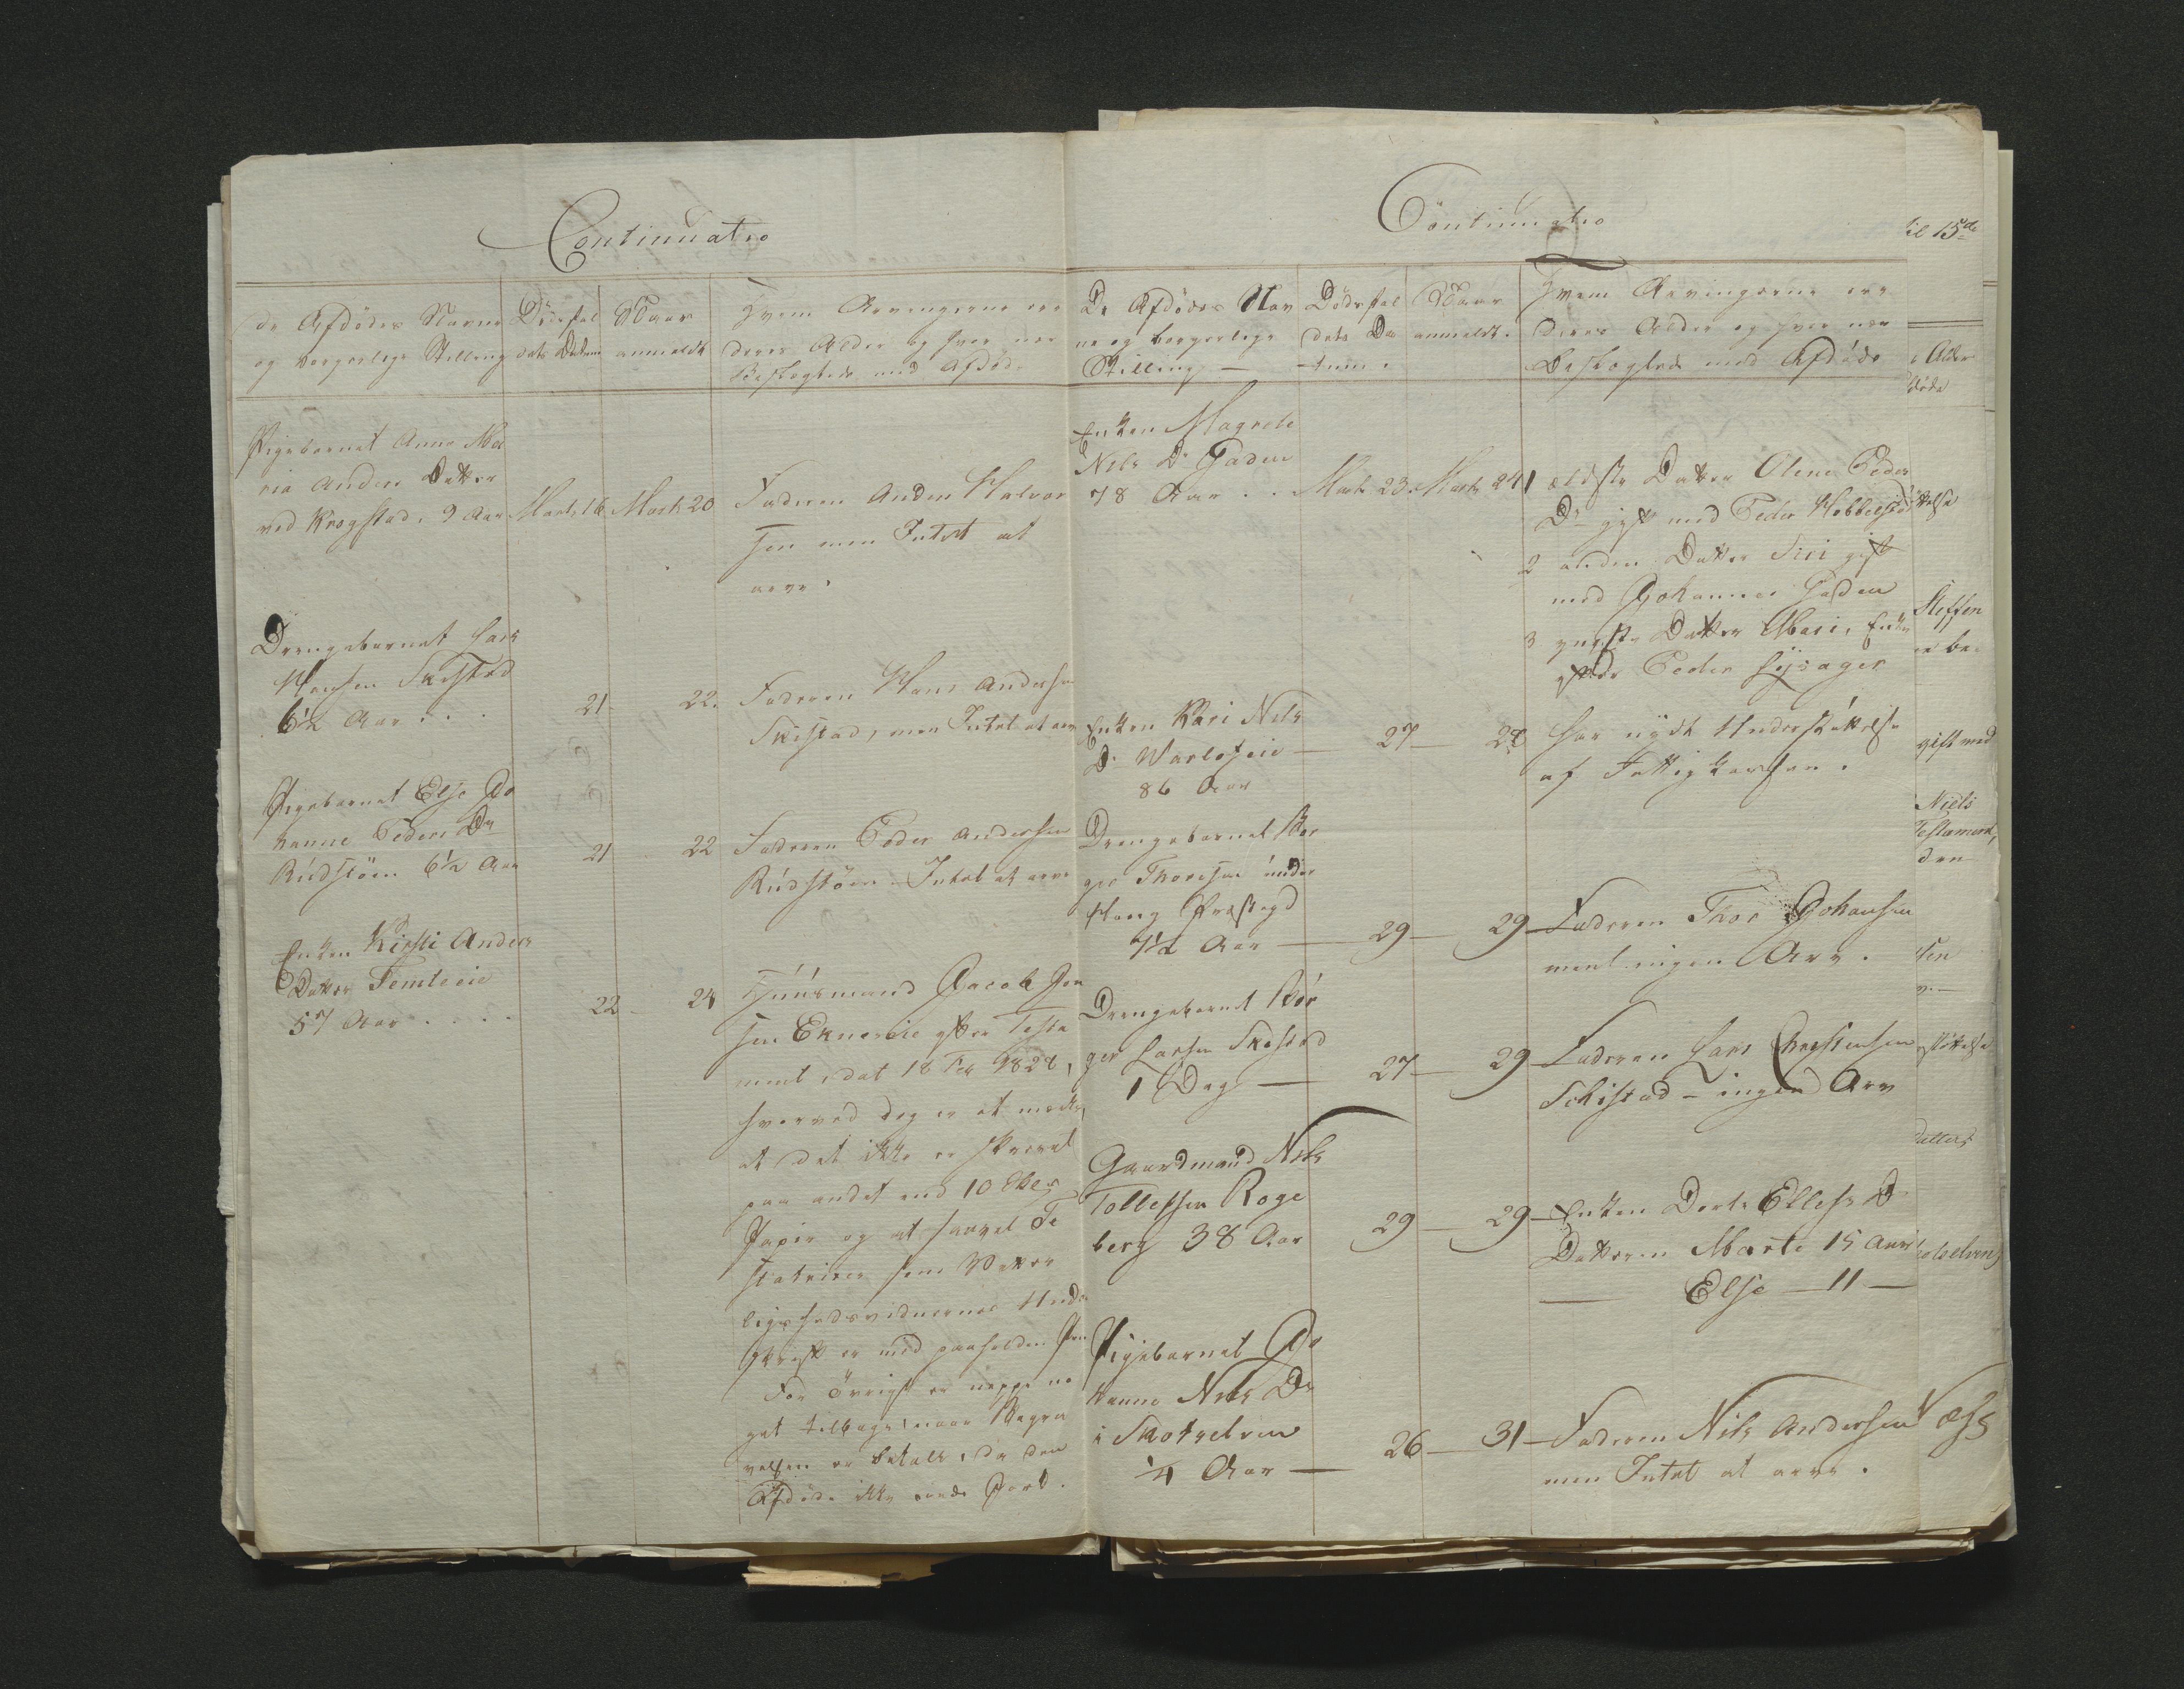 Continuatio
De Afdödes Navne
og borgerlige Stilling
Dödsfal
dets Datum
Naar
anmeldt
Hvem Arvingerne ere
deres Alder og hvor nær
Beslægtede med Afdöde
Pigebarnet Anne Ma
ria Anders Datter
ved Krogstad, 9 Aar
Marts 16
Marts 20
Faderen Anders Halvor
sen men Intet at
arve.
Drengebarnet Lars
Hansen Skistad
6½ Aar . . .
21
22.
Faderen Hans Andersen
Skistad, men Intet at arve
Pigebarnet Else Jo
hanne Peders Dr
Rudstöen 6½ Aar
21
22
Faderen Peder Andersen
Rudstöen Intet at arve
Enken Kirsti Anders
Datter Temteeie
57 Aar . . . .
22
24
Huusmand Jacob Jon
sen Eknæseie efter Testa
ment, dat 18 Feb 1828,
hvorved dog er at mærke,
at det ikke er skrevet
paa andet end 10 Skes
Papir og at saavel Te
statrixes som Vitter
lighedsvidnernes Under
skrift er med paaholden Pen
For övrigt er neppe no
get tilbage, naar Begra
velsen er betalt, da den
Afdöde ikke eiede Jord.
Continuatio
De Afdödes Nav
ne og borgerlige
Stilling —
Dödsfal
dets Da
tum.
Naar
anmeldt.
Hvem Arvingerne ere
deres Alder og hvor nær
Beslægtede med Afdöde
Enken Magrete
Nels Dr Gaden
78 Aar . .
Marts 23.
Marts 24
1 ældste Datter Olene Peders
Dr gift med Peder Hobbelstad
2 anden Datter Siri gift
med Johannes Gaden
3 yngste Datter Mari, Enke
efter Peder Lysager
Enken Kari Nels
Dr Warloseie —
86 Aar
27 —
28
har nydt Understöttelse
af Fattigkassen.
Drengebarnet Bör
ger Thoresen under
Haug Præstegd
7½ Aar —
29 —
29 —
Faderen Thor Johansen
ment ingen Arv.
Drengebarnet Bör
ger Larsen Skistad
1 Dag —
27 —
29 —
Faderen Lars Christensen
Schistad — ingen Arv
Gaardmand Nels
Tollefsen Roge
berg 38 Aar
29 —
29 —
Enken Dorte Ellefs D
Datteren Marte 15 Aar
— Else — 11 —
Pigebarnet Jo
hanne Nels Dr
i Skotselven
¼ Aar —
26 —
31 —
Faderen Nils Andersen Næss
men Intet at arve.
til 15de
Alder
döde
Steffen
gift med
Niels
Testament,
den
sen
Datters